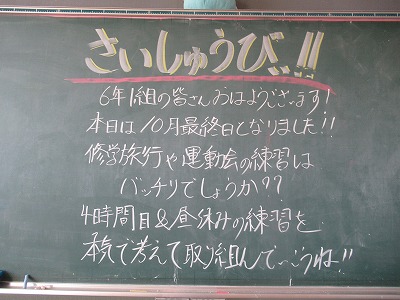 さいしゅうび!!
6年1組の皆さんおはようございます!
本日は10月最終日となりました!!
修学旅行や運動会の練習は
バッチリでしょうか??
4時間目&昼休みの練習を
本気で考えて取り組んで
うね!!